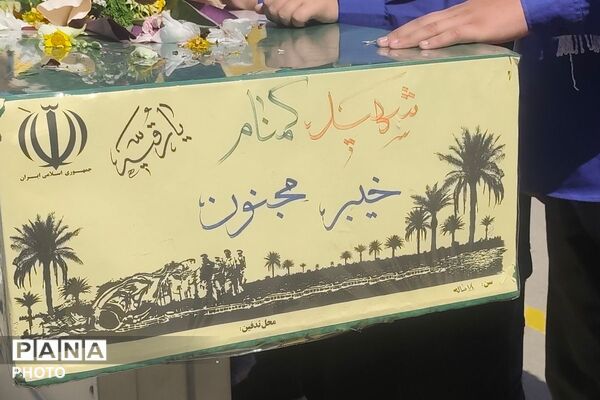 شهید گمنام
یا رقیه
جمهوری اسلامی ایران
خیبر مجنون
سن: ۱۸ ساله
محل تدفین:
PANA
PHOTO